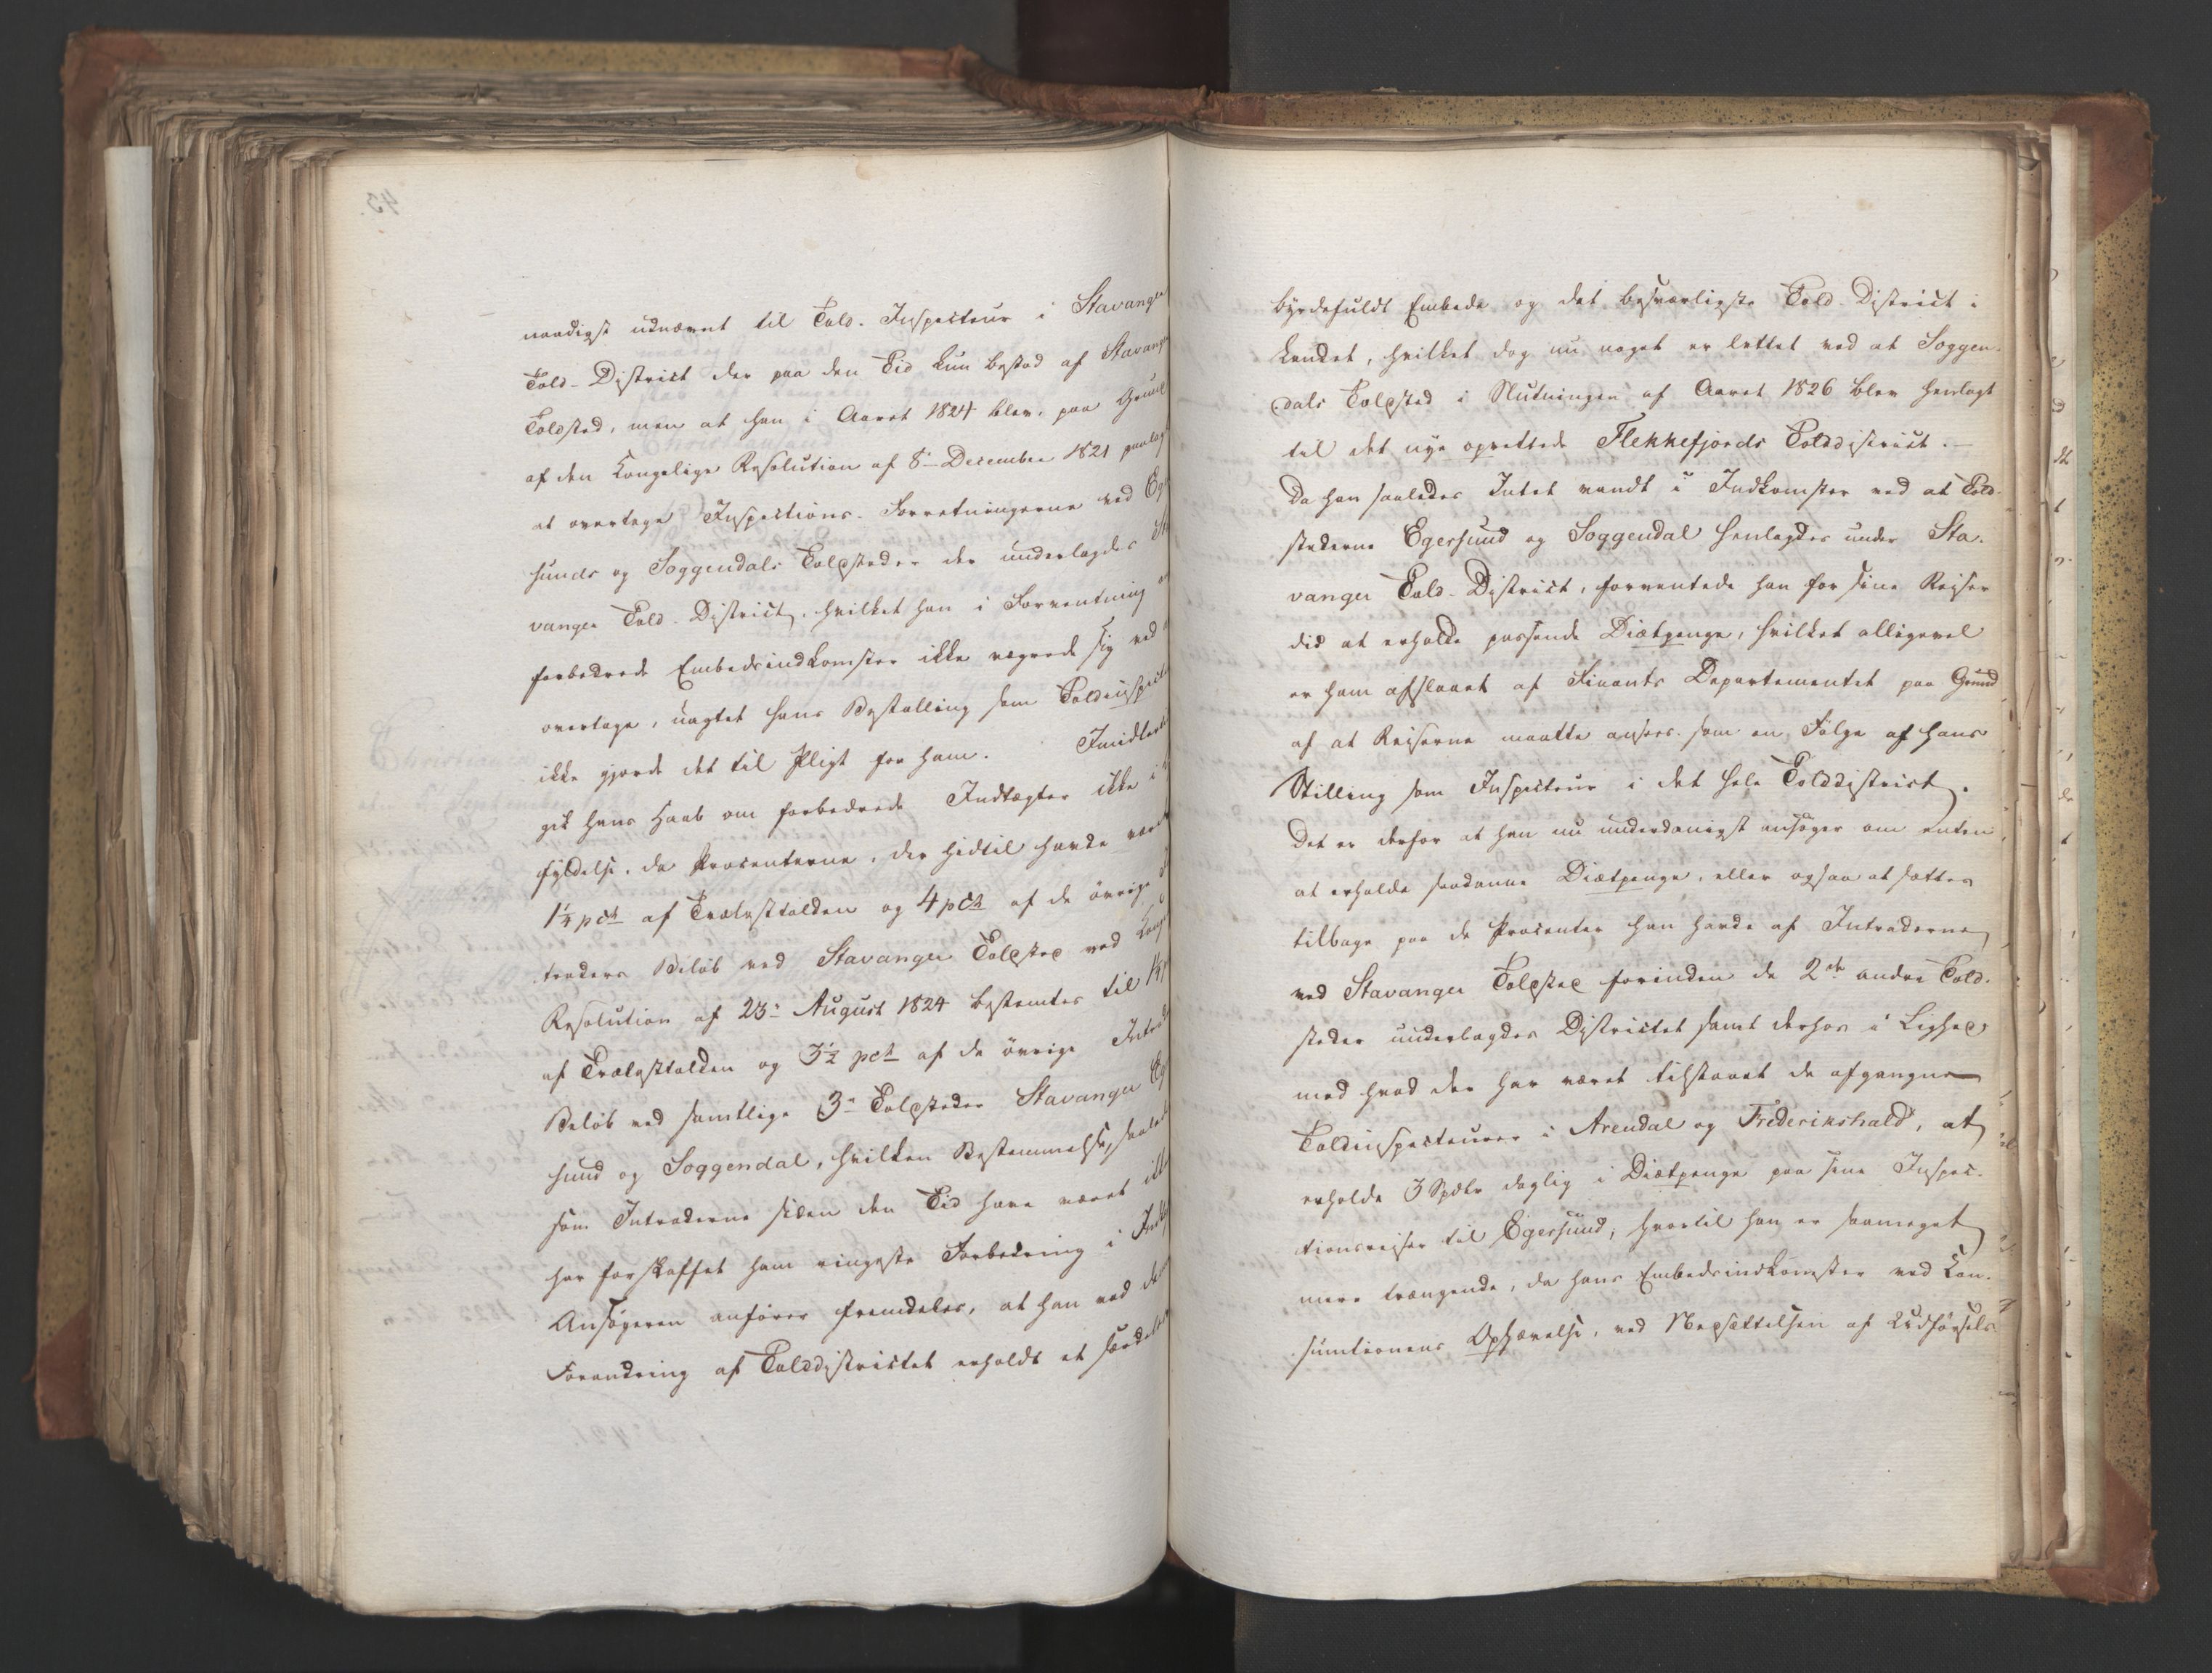 naadigst udnævnt til Told-Inspecteur i Stavanger
Told-District der paa den Tid kun bestod af Stavanger
Toldsted, men at han i Aaret 1824 blev, paa Grund
af den Kongelige Resolution af 8de December 1821 paalagt
at overtage Inspections-Forretningerne ved
sunds og Soggendals Toldsteder der underlagdes
vanger Told-District, hvilket han i Forventning
forbedrede Embedsindkomster ikke vægrede sig ved
overtage, uagtet hans Bestalling som
ikke gjorde det til Pligt for ham.
gik hans Haab om forbedrede Indtægter ikke i
fyldelse, da Procenterne, der hidtil havde været
1¼ pct af Trælasttolden og 4 pct af de övrige
traders Belöb ved Stavanger Toldsted ved
Resolution af 23de August 1824 bestemtes til
af Trælasttolden og 3½ pct af de övrige
Belöb ved samtlige 3de Toldsteder Stavanger
sund og Soggendal, hvilken Bestemmelse,
som Intraderne siden den Tid have været
har forskaffet ham ringeste Forbedring i
Ansögeren anförer fremdeles, at han ved
Forandring af Tolddistrictet erholdt et
byrdefuldt Embede og det besværligste Told-District i
Landet, hvilket dog nu noget er lettet ved at Soggen-
dals Toldsted i Slutningen af Aaret 1826 blev henlagt
til det nye oprettede Flekkefjords Tolddistrict.
Da han saaledes Intet vandt i Indkomster ved at Told-
stederne Egersund og Soggendal henlagdes under Sta-
vanger Told-District, forventede han for sine Reiser
did at erholde passende Diætpenge, hvilket alligevel
er ham afslaaet af Finants Departementet paa Grund
af at Reiserne maatte ansees som en Fölge af hans
Stilling som Inspecteur i det hele Tolddistrict.
Det er derfor at han nu underdanigst ansöger om enten
at erholde saadanne Diætpenge, eller ogsaa at sættes
tilbage paa de Procenter han havde af Intraderne
ved Stavanger Toldsted forinden de 2de andre Told-
steder underlagdes Districtet samt derhos i Lighed
med hvad der har været tilstaaet de afgangne
Toldinspecteurer i Arendal og Frederikshald, at
erholde 3 Spdlr daglig i Diætpenge paa sine Inspec-
tionsreiser til Egersund, hvortil han er saameget
mere trængende, da hans Embedsindkomster ved Con-
sumtionens Ophævelse, ved Nedsættelsen af Udförsels